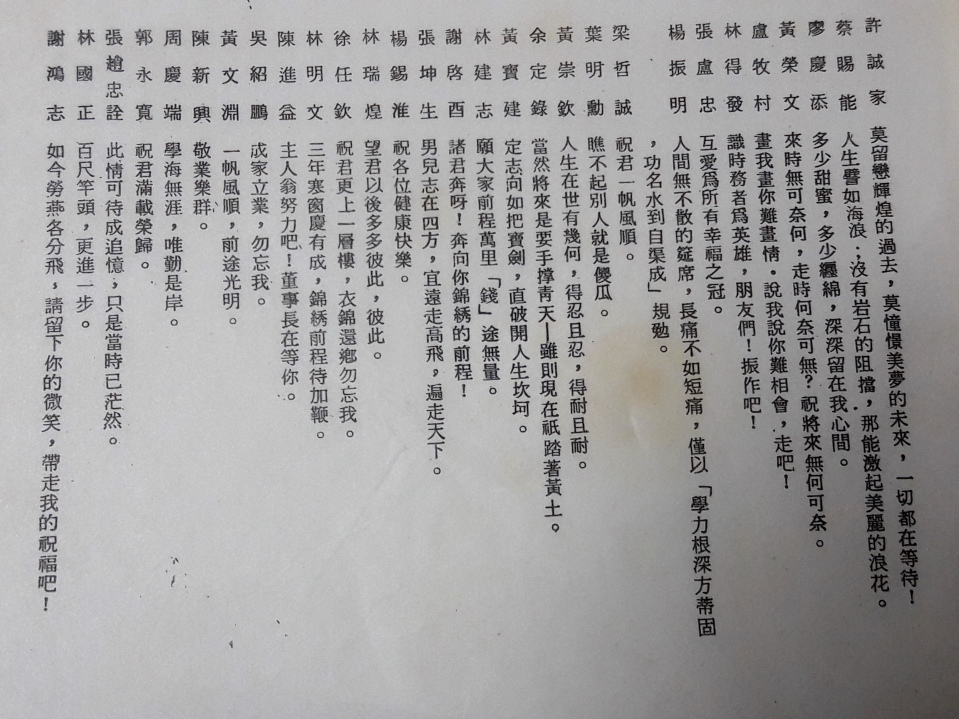 許誠家 莫留戀輝煌的過去，莫憧憬美夢的未來，一切都在等待！
蔡賜能 人生譬如海浪；沒有岩石的阻擋，那能激起美麗的浪花。
廖慶添 多少甜蜜，多少纏綿，深深留在我心間。
黃榮文 來時無可奈何，走時何奈可無？祝將來無何可奈。
盧牧村 畫我畫你難畫情。說我說你難相會，走吧！
林得發 識時務者為英雄，朋友們！振作吧！
張盧忠 互愛為所有幸福之冠。
楊振明 人間無不散的筵席，長痛不如短痛，僅以「學力根深方蒂固
，功名水到自渠成」規勉。
梁哲誠 祝君一帆風順。
葉明勳 瞧不起別人就是傻瓜。
黃崇欽 人生在世有幾何，得忍且忍，得耐且耐。
余定錄 當然將來是要手撐青天—雖則現在祇踏著黃土。
黃寶建 定志向如把寶劍，直破開人生坎坷。
林建志 願大家前程萬里「錢」途無量。
謝啓酉 諸君奔呀！奔向你錦綉的前程！
張坤生 男兒志在四方，宜遠走高飛，遍走天下。
楊錫淮 祝各位健康快樂。
林瑞煌 望君以後多多彼此，彼此。
徐任欽 祝君更上一層樓，衣錦還鄉勿忘我。
林明文 三年寒窗慶有成，錦綉前程待加鞭。
陳進益 主人翁努力吧！董事長在等你。
吳紹鵬 成家立業，勿忘我。
黃文淵 一帆風順，前途光明。
陳新興 敬業樂群。
周慶端 學海無涯，唯勤是岸。
郭永寬 祝君滿載榮歸。
張趙忠詮 此情可待成追憶，只是當時已茫然。
林國正 百尺竿頭，更進一步。
謝鴻志 如今勞燕各分飛，請留下你的微笑，帶走我的祝福吧！